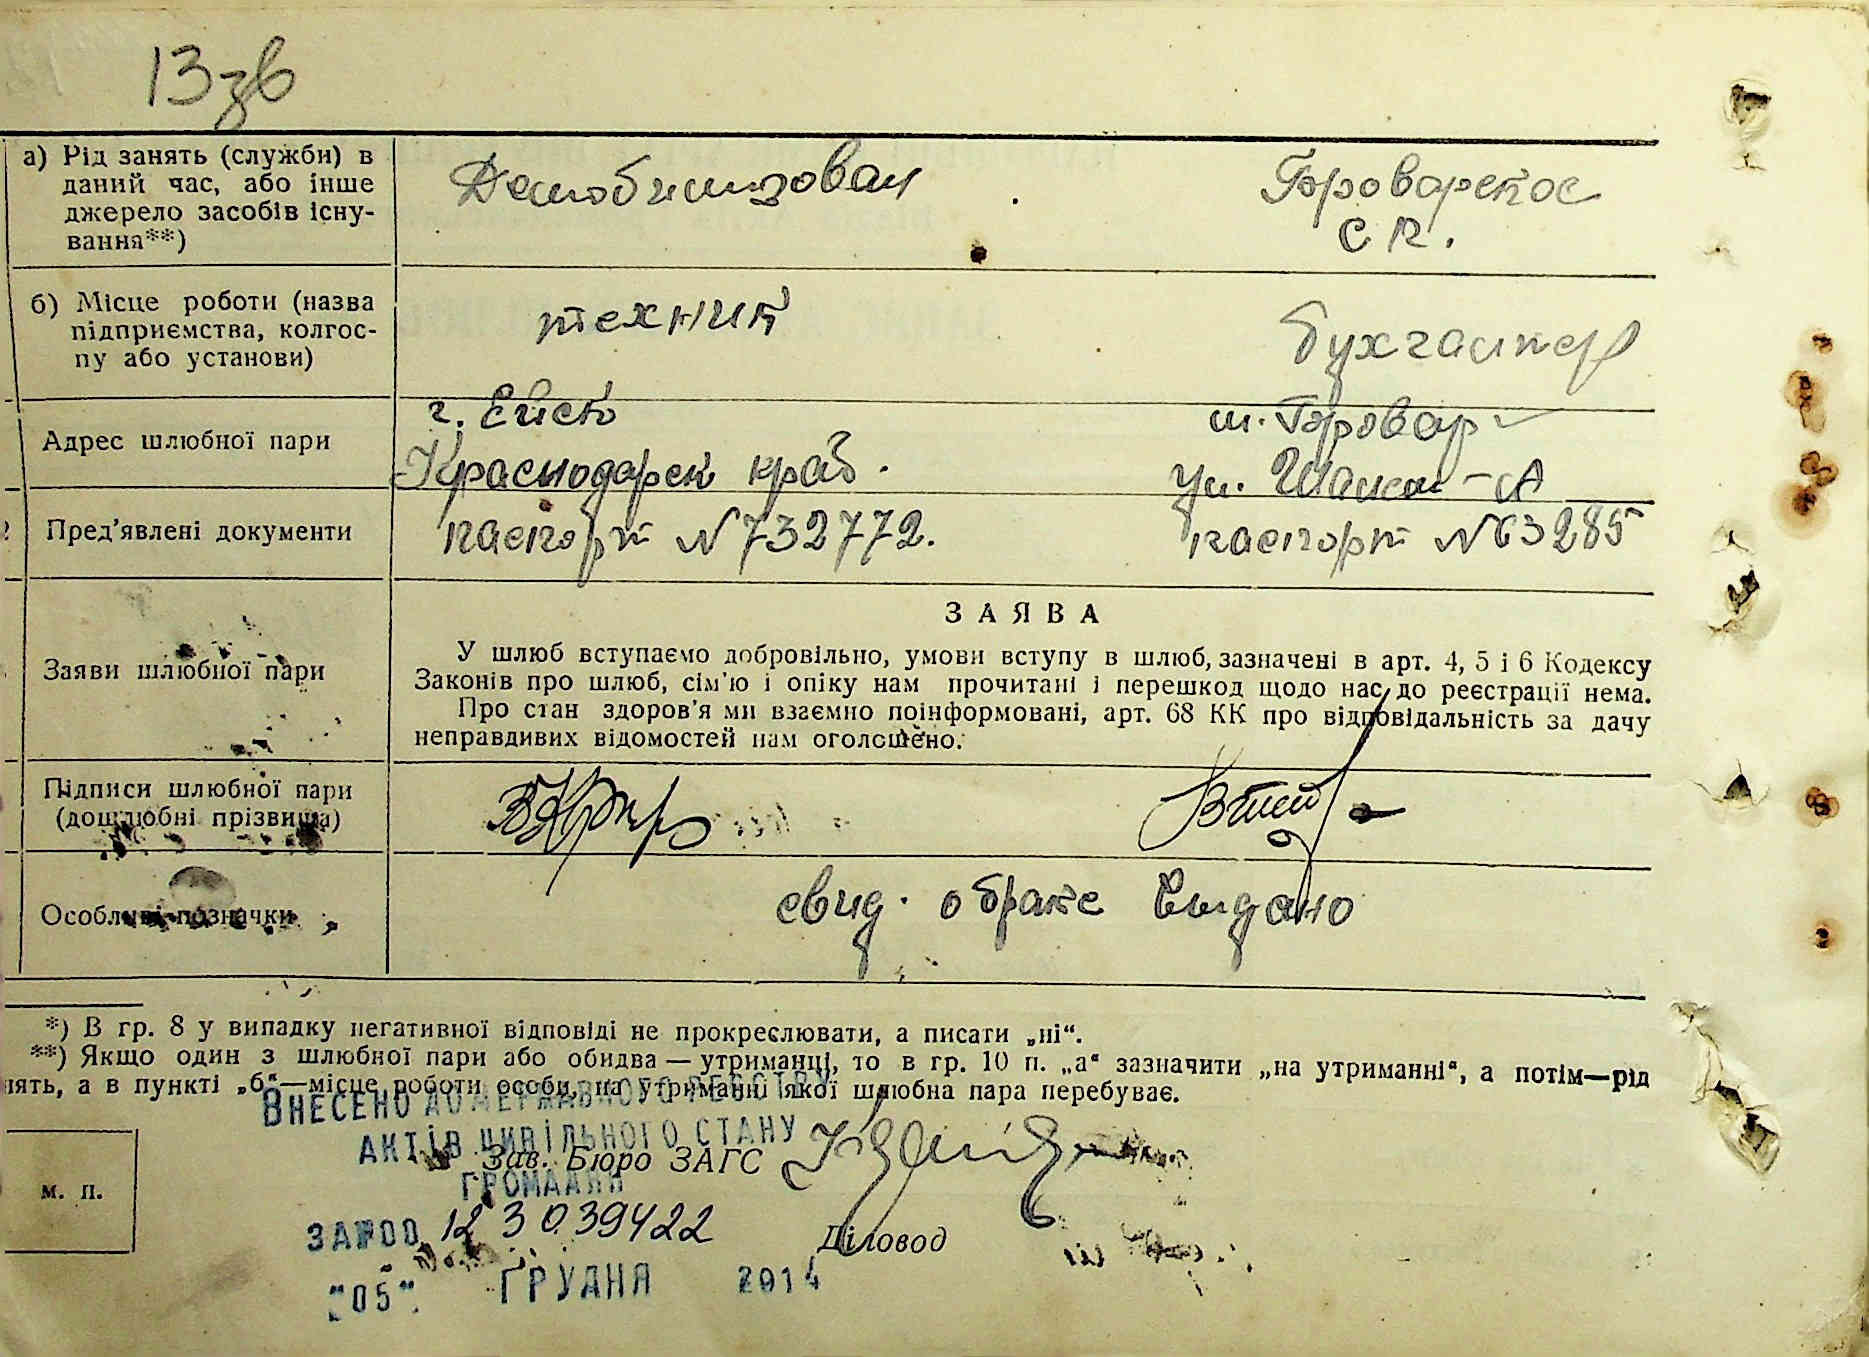 13зв
а) Рід занять (служби) в
даний час, або інше
джерело засобів існу-
вання**)
Демобилизован
Броварской
с п.
б) Місце роботи (назва
підприємства, колгос-
пу або установи)
техник
бухгалтер
Адрес шлюбної пари
г. Ейск
Краснодарск край.
м. Бровар
ул.
Пред'явлені документи
паспорт N 732772.
паспорт N 63285
Заяви шлюбної пари
ЗАЯВА
У шлюб вступаємо добровільно, умови вступу в шлюб, зазначені в арт. 4, 5 і 6 Кодексу
Законів про шлюб, сім'ю і опіку нам прочитані і перешкод щодо нас до реєстрації нема.
Про стан здоров'я ми взаємно поінформовані, арт. 68 КК про відповідальність за дачу
неправдивих відомостей нам оголошено.
Підписи шлюбної пари
(дошлюбні прізвища)
Особливі позначки
свид. о браке выдано
*) В гр. 8 у випадку негативної відповіді не прокреслювати, а писати „ні“.
**) Якщо один з шлюбної пари або обидва — утриманці, то в гр. 10 п. „а“ зазначити „на утриманні“, а потім—рід
нять, а в пункті „б“—місце роботи особи, на утриманні якої шлюбна пара перебуває.
ВНЕСЕНО ДО ДЕРЖАВНОГО РЕЄСТРУ
АКТІВ ЦИВІЛЬНОГО СТАНУ
Зав. Бюро ЗАГС
ГРОМАДЯН
м. п.
ЗА №00 12 3039422
Діловод
"05" ГРУДНЯ 2014